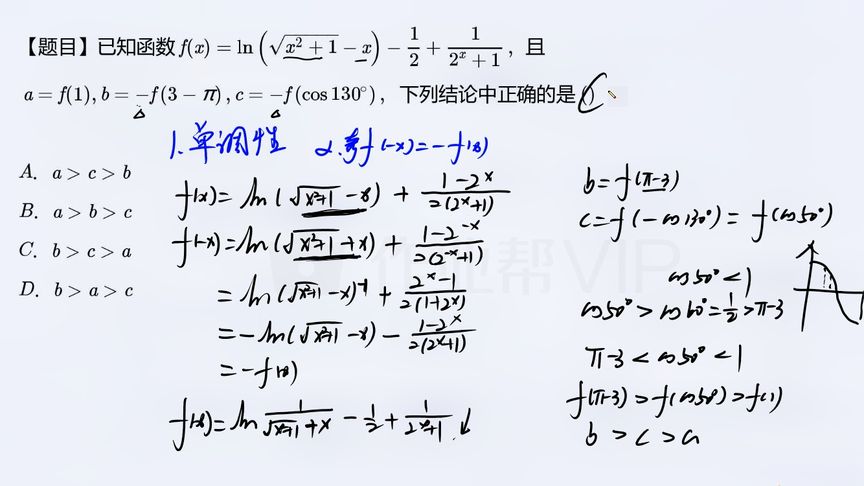 【题目】已知函数 f(x) = ln(√(x²+1) − x) − 1/2 + 1/(2ˣ+1)，且
a = f(1), b = −f(3 − π), c = −f(cos 130°)，下列结论中正确的是（）
1.单调性 2.考f(-x)=-f(x)
A. a > c > b
B. a > b > c
C. b > c > a
D. b > a > c
f(x)=ln(√(x²+1)-x)+(1-2ˣ)/(2(2ˣ+1))
f(-x)=ln(√(x²+1)+x)+(1-2⁻ˣ)/(2(2⁻ˣ+1))
=ln(√(x²+1)-x)⁻¹+(2ˣ-1)/(2(1+2ˣ))
=-ln(√(x²+1)-x)-(1-2ˣ)/(2(2ˣ+1))
=-f(x)
f(x)=ln 1/(√(x²+1)+x)-1/2+1/(2ˣ+1) ↓
b=f(π-3)
c=f(-cos130°)=f(cos50°)
cos50°<1
cos50°>cos60°=1/2>π-3
π-3<cos50°<1
f(π-3)>f(cos50°)>f(1)
b>c>a